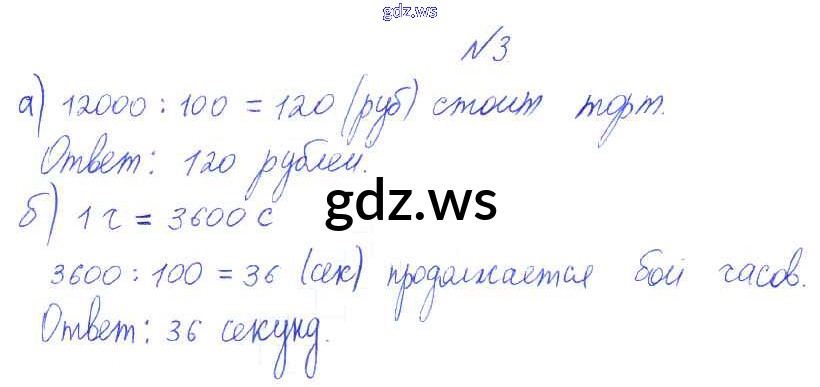 gdz.ws
№3
а) 12000 : 100 = 120 (руб) стоит торт.
Ответ: 120 рублей.
б) 1 ч = 3600 с
gdz.ws
3600 : 100 = 36 (сек) продолжается бой часов.
Ответ: 36 секунд.